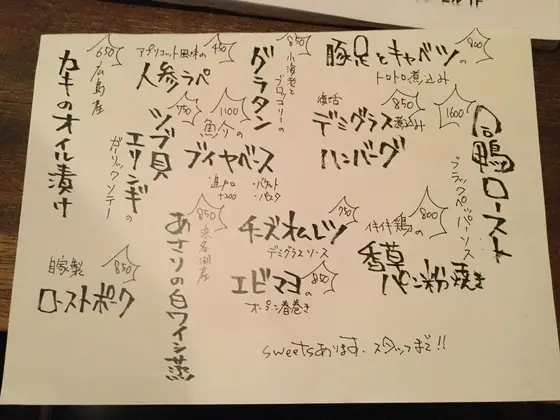 合鴨ロースト
ブラックペッパーソース
1600
豚足とキャベツの
トロトロ煮込み
900
復活
デミグラス煮込み
ハンバーグ
850
イキイキ鶏の
香草
パン粉焼き
800
小海老と
ブロッコリーの
グラタン
850
チーズオムレツ
デミグラスソース
750
エビマヨの
オープン春巻き
850
魚介の
ブイヤベース
1100
追加
+200
・バゲット
・パスタ
アプリコット風味の
人参ラペ
450
ツブ貝
エリンギの
ガーリックソテー
750
浜名湖産
あさりの白ワイン蒸
850
広島産
カキのオイル漬け
650
自家製
ローストポーク
850
sweetsあります、スタッフまで!!